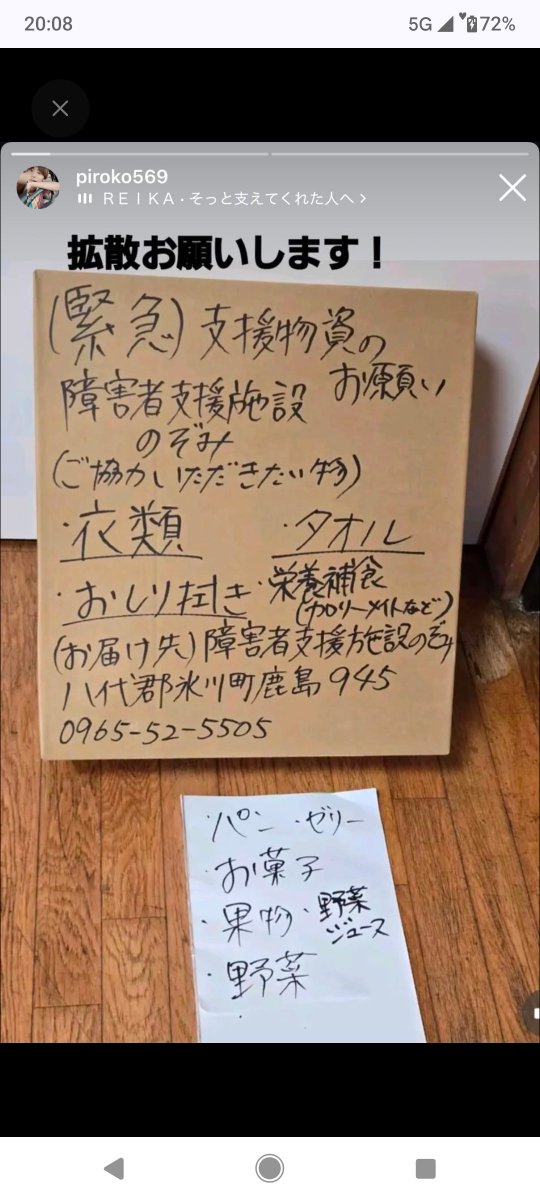 20:08
5G 72%
piroko569
ＲＥＩＫＡ・そっと支えてくれた人へ >
拡散お願いします！
(緊急)支援物資の
お願い
障害者支援施設
のぞみ
(ご協力いただきたい物)
・衣類
・タオル
・おしり拭き
・栄養補食
(カロリーメイトなど)
(お届け先)障害者支援施設のぞみ
八代郡氷川町鹿島945
0965-52-5505
・パン ・ゼリー
・お菓子
・果物 ・野菜
ジュース
・野菜
・